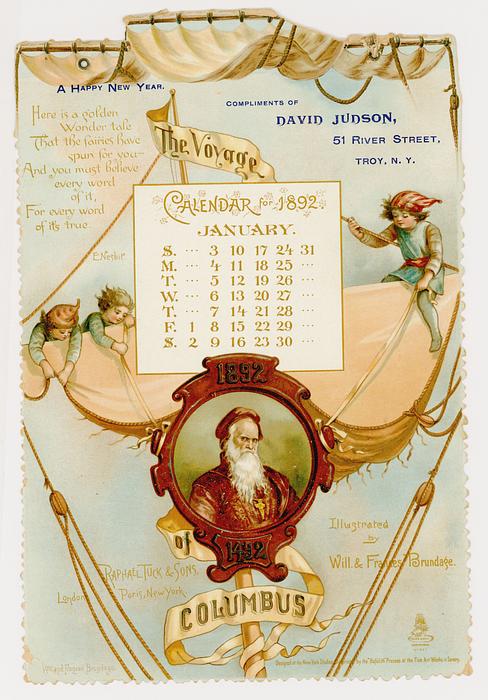 A HAPPY NEW YEAR.
COMPLIMENTS OF
DAVID JUDSON,
51 RIVER STREET,
TROY, N. Y.
Here is a golden
Wonder tale
That the fairies have
spun for you—
And you must believe
every word
of it,
For every word
of it's true.
E. Nesbit
The Voyage
CALENDAR for 1892.
JANUARY.
S. ... 3 10 17 24 31
M. ... 4 11 18 25 ...
T. ... 5 12 19 26 ...
W. ... 6 13 20 27 ...
T. ... 7 14 21 28 ...
F. 1 8 15 22 29 ...
S. 2 9 16 23 30 ...
1892
1492
of
COLUMBUS
Illustrated
by
Will & Frances Brundage.
RAPHAEL TUCK & SONS,
London Paris, New York.
Designed at the New York Studios
by the "Raphael" Presses at the Fine Art Works in Saxony.